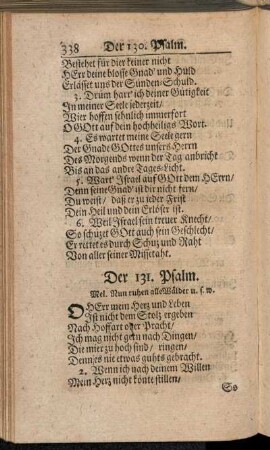 338 Der 130. Psalm.
Bestehet für dier keiner nicht
HErr deine blosse Gnad' und Huld
Erlässet uns der Sünden-Schuld.
3. Drum harr' ich deiner Gütigkeit
In meiner Seele jederzeit/
Wier hoffen sehnlich immerfort
O GOtt auf dein hochheiligs Wort.
4. Es wartet meine Seele gern
Der Gnade GOttes unsers Herrn
Des Morgends wenn der Tag anbricht
Bis an das andre Tages-Licht.
5. Wart' Israel auf GOtt dem HErrn/
Denn seine Gnad' ist dir nicht fern/
Du weist/ daß er zu jeder Frist
Dein Heil und dein Erlöser ist.
6. Weil Israel sein treuer Knecht/
So schützet GOtt auch sein Geschlecht/
Er rettet es durch Schutz und Raht
Von aller seiner Missetaht.
Der 131. Psalm.
Mel. Nun ruhen alle Wälder u. s. w.
O HErr mein Herz und Leben
Ist nicht dem Stolz ergeben
Nach Hoffart oder Pracht/
Ich mag nicht gern nach Dingen/
Die mier zu hoch sind/ ringen/
Denn es nie etwas guhts gebracht.
2. Wenn ich nach deinem Willen
Mein Herz nicht könte stillen/
So